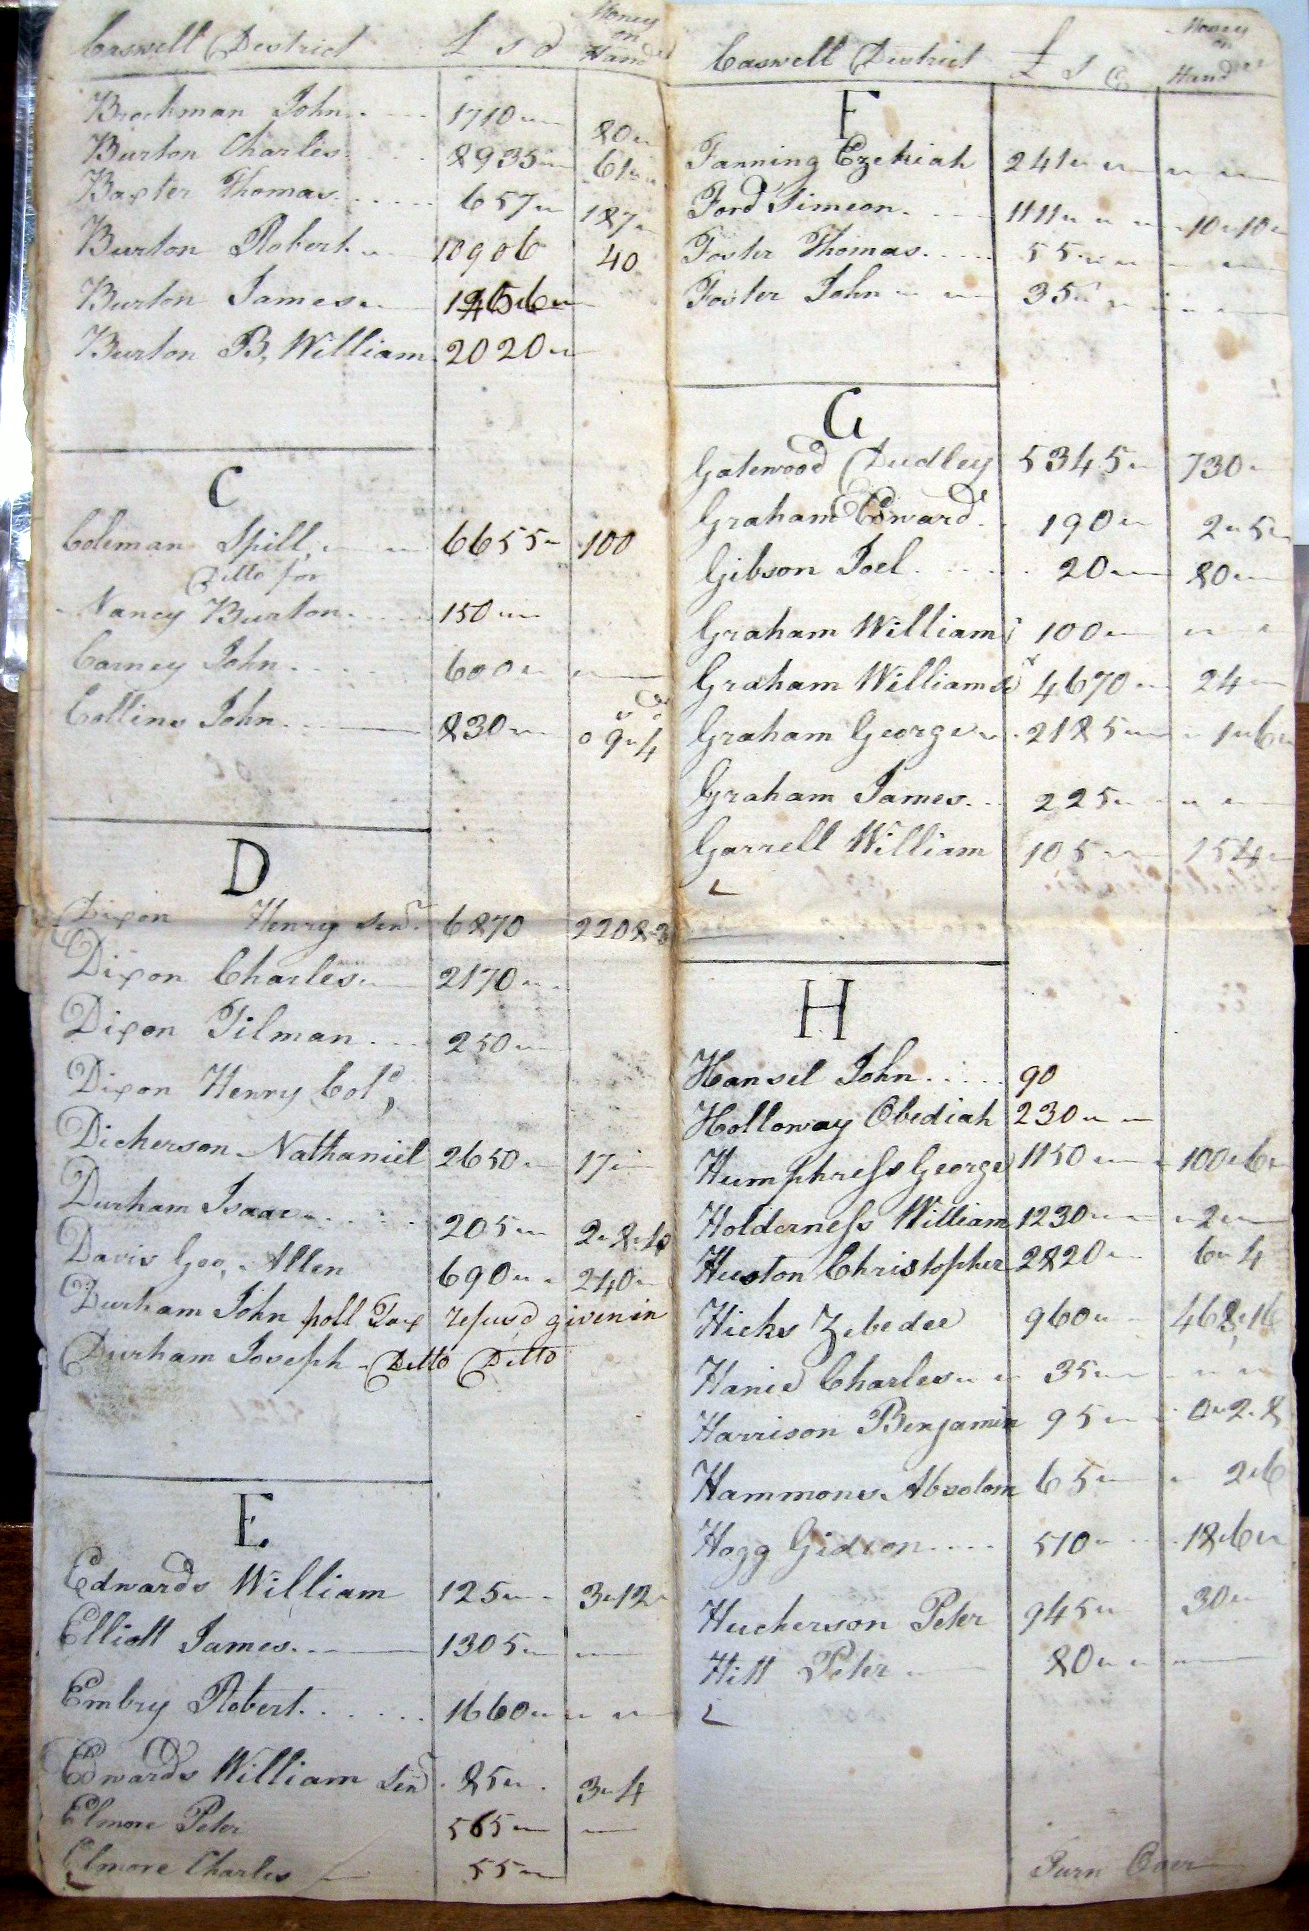 Caswell District £ s d Money on Hand
Brockman John 1710 80
Burton Charles 8935 61
Baxter Thomas 657 187
Burton Robert 10906 40
Burton James
Burton B, William 2020
C
Coleman Spill 6655 100
Ditto for
Nancy Burton 150
Carney John 600
Collins John 830 0 9 4
D
Dixon Henry Senr 6870 220 8 3
Dixon Charles 2170
Dixon Tilman 250
Dixon Henry Colo
Dickerson Nathaniel 2650 17
Durham Isaac 205 2 2
Davis Geo, Allen 690 240
Durham John poll Tax refusd given in
Durham Joseph Ditto Ditto
E
Edwards William 125 3 12
Elliott James 1305
Embry Robert 1660
Edwards William Senr 85 3 4
Elmore Peter 565
Elmore Charles 55
Caswell District £ s Money on Hand
F
Fanning Ezekiah 241
Ford Simeon 1111 10 10
Foster Thomas 55
Foster John 35
G
Gatewood Dudley 5345 730
Graham Edward 190 2 5
Gibson Joel 20 80
Graham William 100
Graham William 4670 24
Graham George 2185 1 6
Graham James 225
Garrett William 105 154
H
Hansel John 90
Holloway Obediah 230
Humphress George 1150 100 6
Holderness William 1230 2
Huston Christopher 2820 6 4
Hicks Zebedee 960 468 16
Hanie Charles 35
Harrison Benjamin 95 0 2 8
Hammons Absolom 65 2 6
Hogg Gideon 510 18 6
Hucherson Peter 945 30
Hitt Peter 80
Turn Over